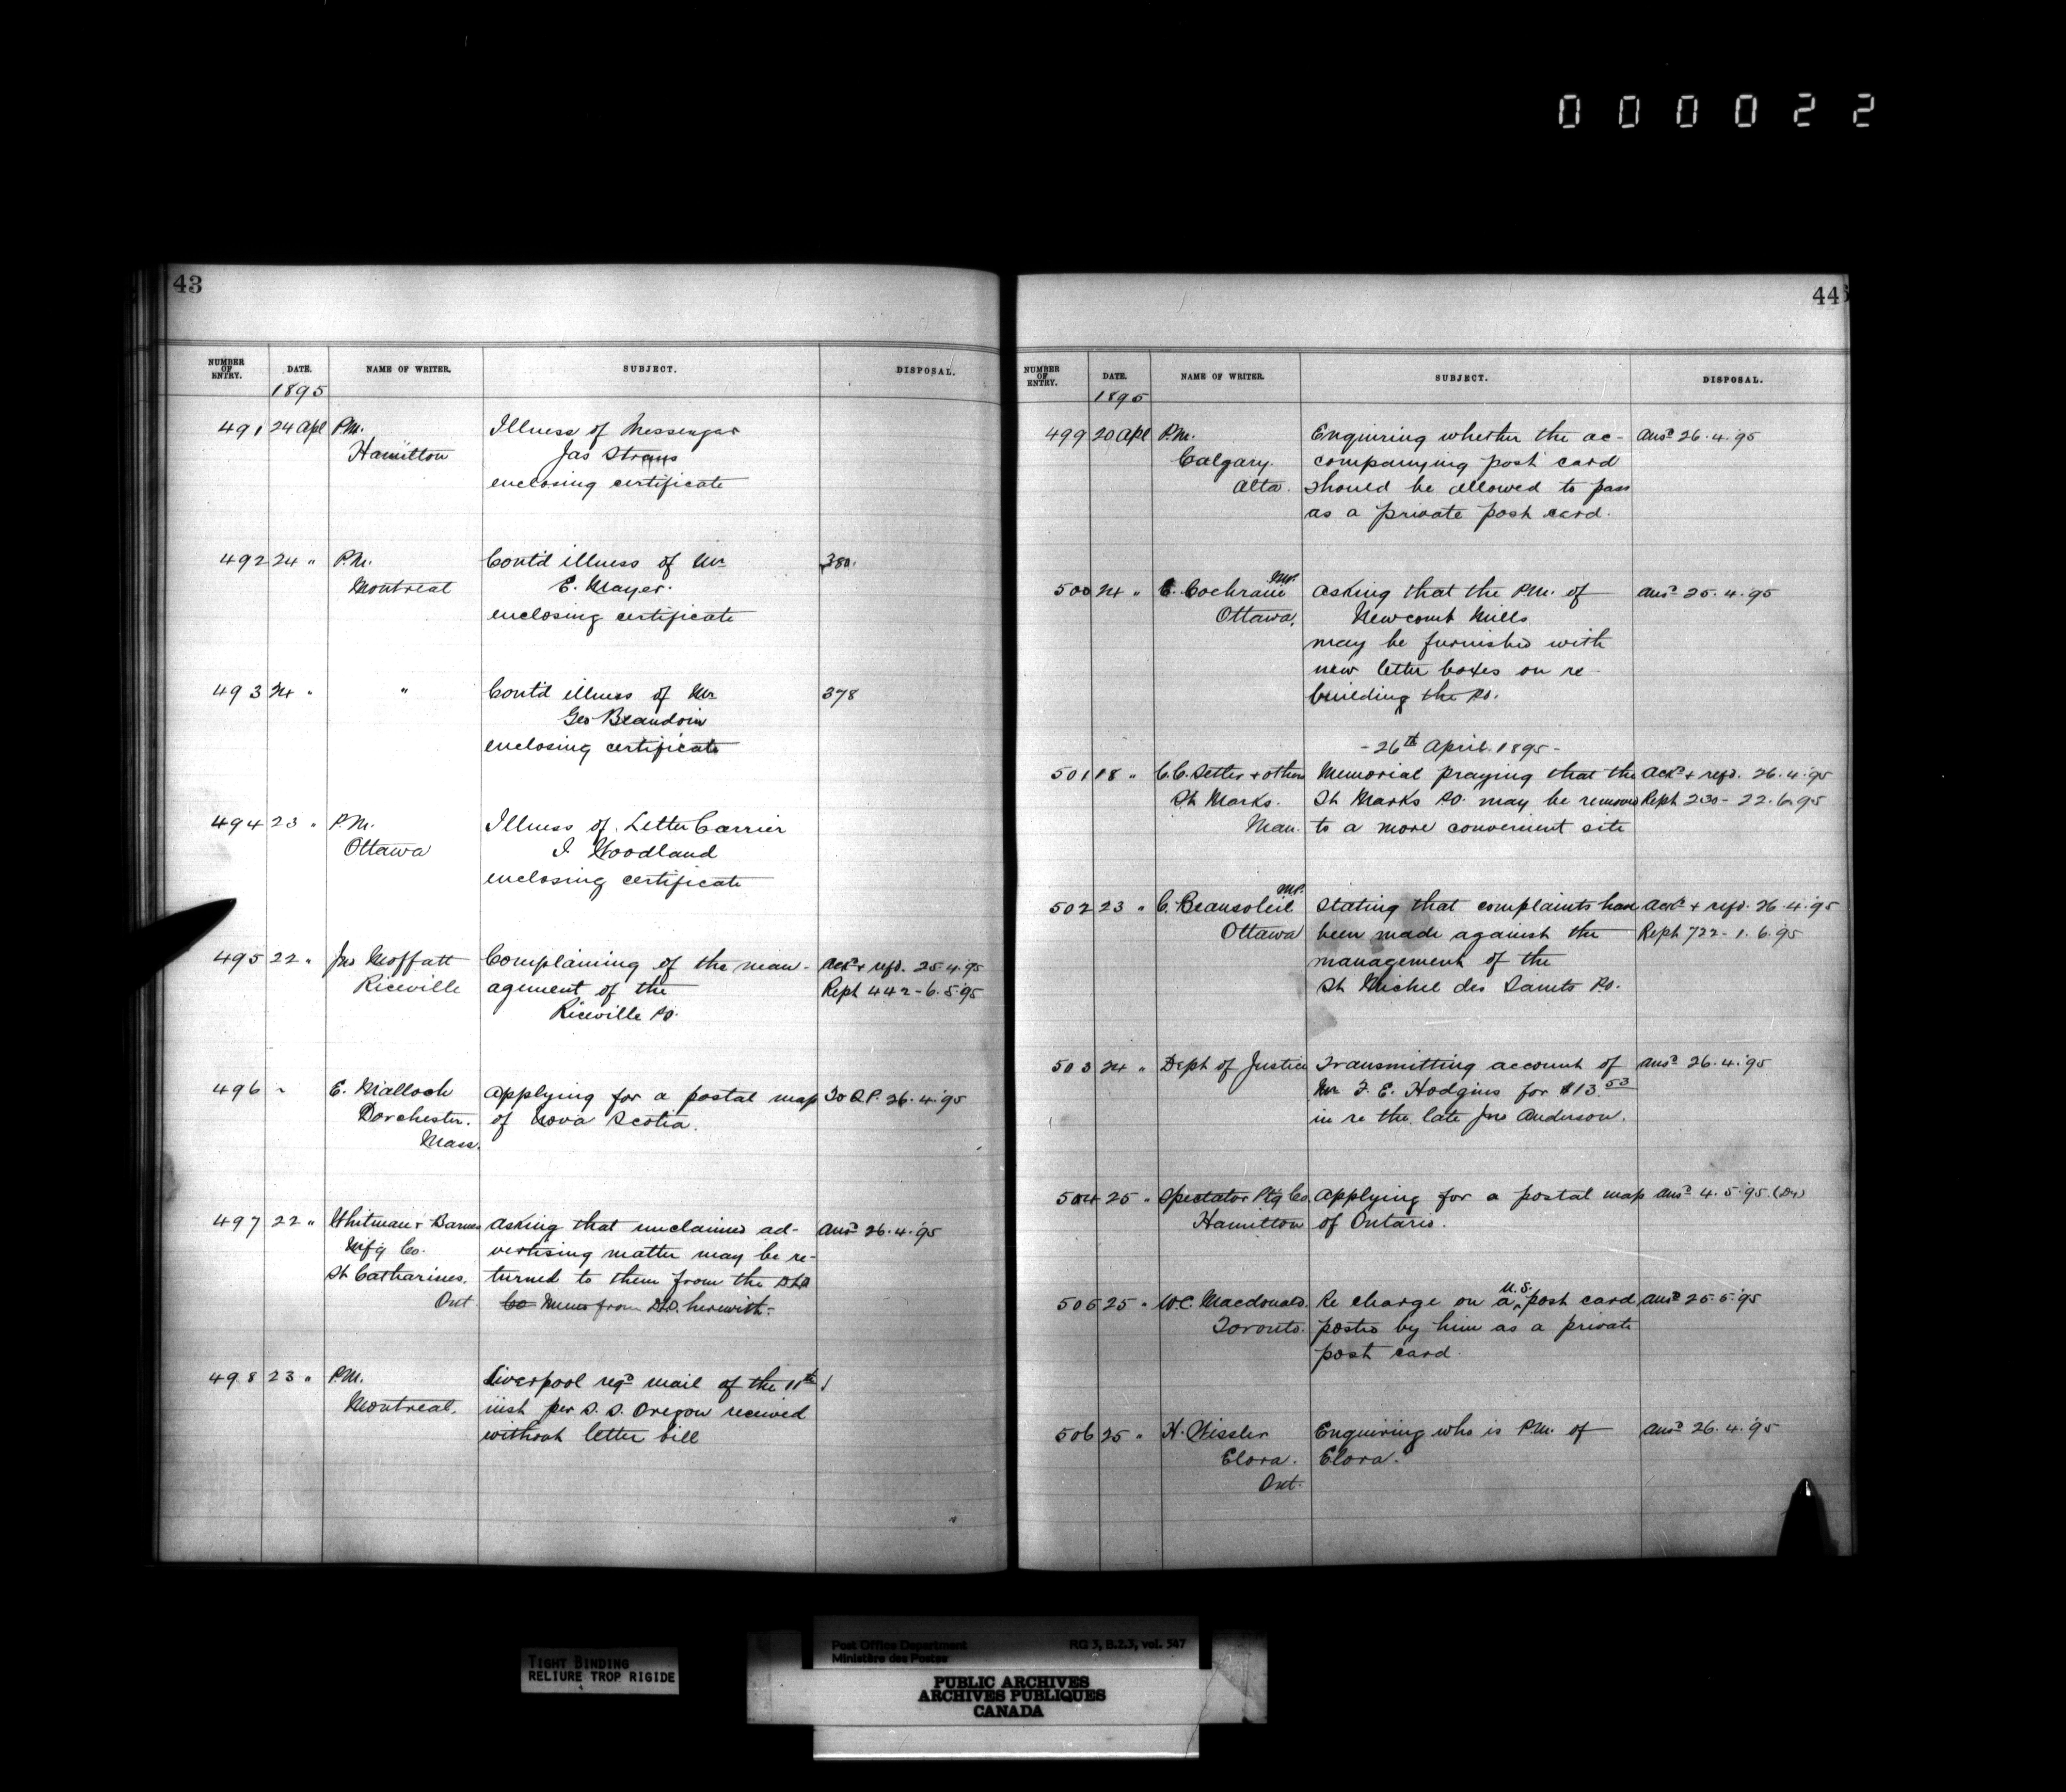 000022
43
NUMBER OF ENTRY. DATE. NAME OF WRITER. SUBJECT. DISPOSAL.
1895
491 24 Apl P.M. Illness of Messenger
Hamilton Jas Straus
enclosing certificate
492 24 " P.M. Cont'd illness of Mr 380.
Montreal E. Mayer.
enclosing certificate
493 24 " " Cont'd illness of Mr 378
Geo Beaudoin
enclosing certificate
494 23 " P.M. Illness of Letter Carrier
Ottawa I Woodland
enclosing certificate
495 22 " Jno Moffatt Complaining of the man- Ackd + refd. 25.4.'95
Riceville agement of the Rept 442-6.5.'95
Riceville PO.
496 ~ E. Malloch Applying for a postal map To Q.P. 26.4.'95
Dorchester. of Nova Scotia.
Mass.
497 22 " Whitman + Barnes Asking that unclaimed ad- Ansd 26.4.'95
Mfg Co. vertising matter may be re-
St Catharines. turned to them from the DLO
Ont. Co Memo from DLO. herewith.
498 23 " P.M. Liverpool regd mail of the 11th
Montreal. inst per S.S. Oregon received
without letter bill
44
NUMBER OF ENTRY. DATE. NAME OF WRITER. SUBJECT. DISPOSAL.
1895
499 20 Apl P.M. Enquiring whether the ac- Ansd 26.4.'95
Calgary. companying post card
Alta. should be allowed to pass
as a private post card.
500 24 " E. Cochrane MP. Asking that the P.M. of Ansd 25.4.'95
Ottawa. Newcomb Mills
may be furnished with
new letter boxes on re-
building the PO.
-26th April. 1895-
501 18 " C.C. Setter + others Memorial praying that the Ackd + refd. 26.4.'95
St Marks. St Marks PO. may be removed Rept 230-22.6.95
Man. to a more convenient site
502 23 " C. Beausoleil MP. Stating that complaints have Ackd + refd. 26.4.'95
Ottawa been made against the Rept 722-1.6.95
management of the
St Michel des Saints P.O.
503 24 " Dept of Justice Transmitting account of Ansd 26.4.'95
Mr F. E. Hodgins for $13.53
in re the late Jno Anderson.
504 25 " Spectator Ptg Co. Applying for a postal map Ansd 4.5.'95.
Hamilton of Ontario.
505 25 " W.C. Macdonald. Re charge on a U.S. post card Ansd 25.5.'95
Toronto. posted by him as a private
post card.
506 25 " H. Wissler Enquiring who is P.M. of Ansd 26.4.'95
Elora. Elora.
Ont.
TIGHT BINDING
RELIURE TROP RIGIDE
Post Office Department RG 3, B.2.3, vol. 547
Ministère des Postes
PUBLIC ARCHIVES
ARCHIVES PUBLIQUES
CANADA